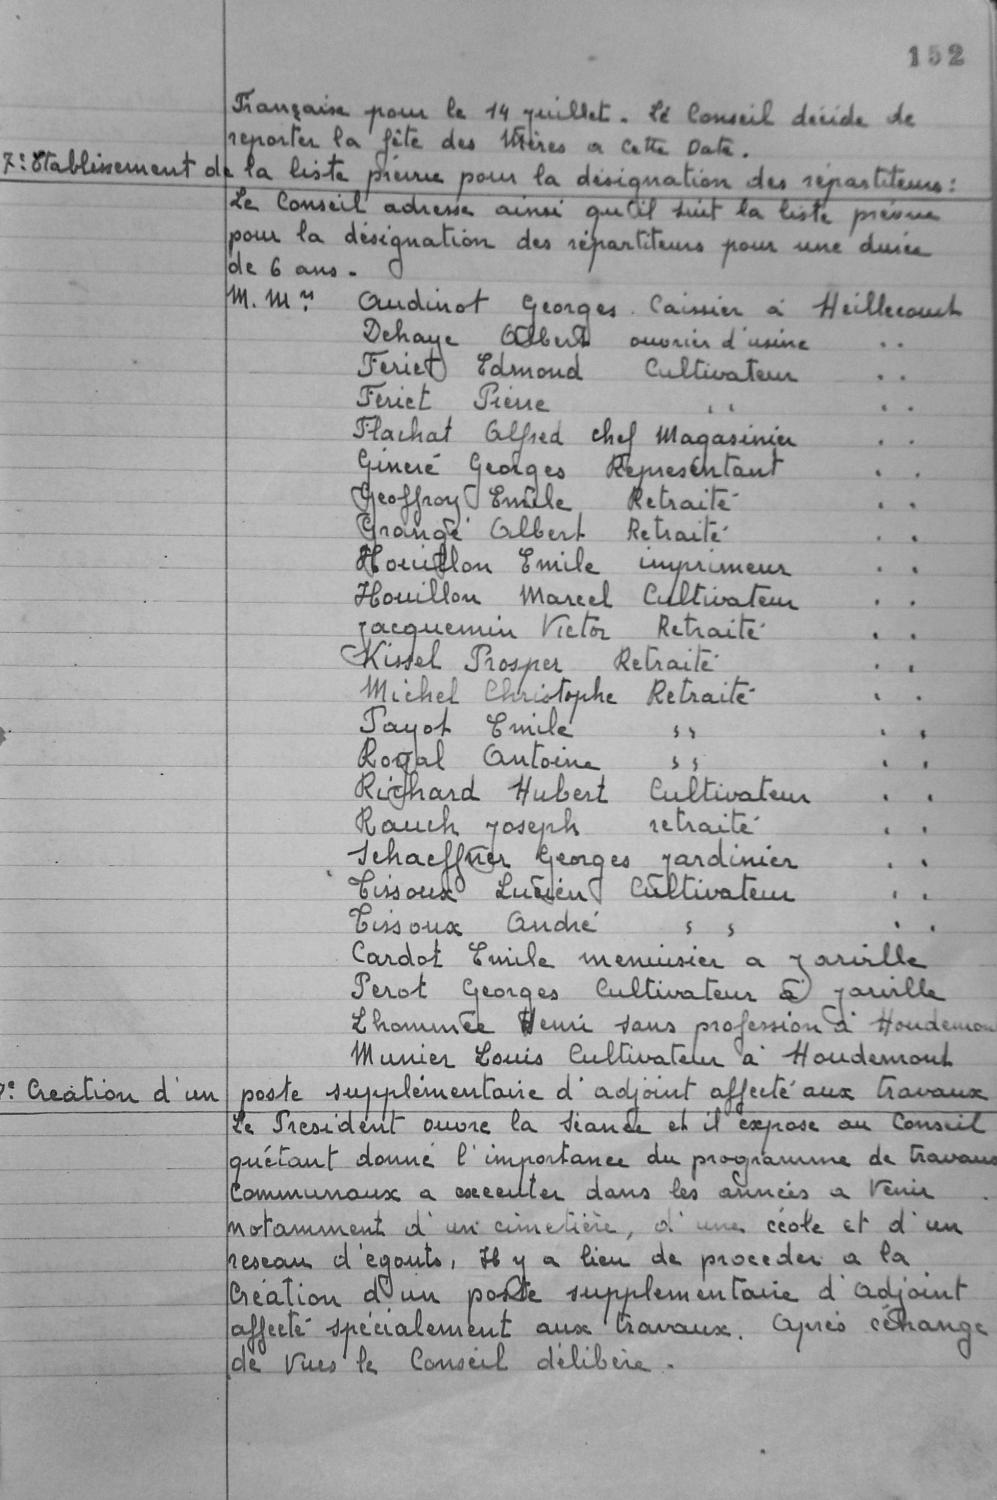 152
Française pour le 14 juillet. Le Conseil décide de
reporter la fête des Mères a cette Date.
7: Etablissement de la liste prévue pour la désignation des répartiteurs:
Le Conseil adresse ainsi qu'il suit la liste prévue
pour la désignation des répartiteurs pour une durée
de 6 ans.
M. Mrs Audinot Georges Caissier à Heillecourt
Dehaye Albert ouvrier d'usine ..
Feriet Edmond Cultivateur ..
Feriet Pierre " ..
Flachat Alfred chef Magasinier ..
Gineré Georges Représentant ..
Geoffroy Emile Retraité ..
Grangé Albert Retraité ..
Houillon Emile imprimeur ..
Houillon Marcel Cultivateur ..
Jacquemin Victor Retraité ..
Kissel Prosper Retraité ..
Michel Christophe Retraité ..
Payot Emile " ..
Royal Antoine " ..
Richard Hubert Cultivateur ..
Rauch Joseph retraité ..
Schaeffner Georges jardinier ..
Tissoux Lucien Cultivateur ..
Tissoux André " ..
Cardot Emile menuisier a Jarville
Perot Georges Cultivateur à Jarville
Lhommée Henri sans profession à Houdemon
Munier Louis Cultivateur à Houdemont
Création d'un poste supplémentaire d'adjoint affecté aux travaux
Le President ouvre la séance et il expose au Conseil
qu'étant donné l'importance du programme de travaux
Communaux a executer dans les années a venir
notamment d'un cimetière, d'une école et d'un
reseau d'egouts, Il y a lieu de proceder a la
Création d'un poste supplementaire d'adjoint
affecté spécialement aux travaux. Après échange
de vues le Conseil délibère.